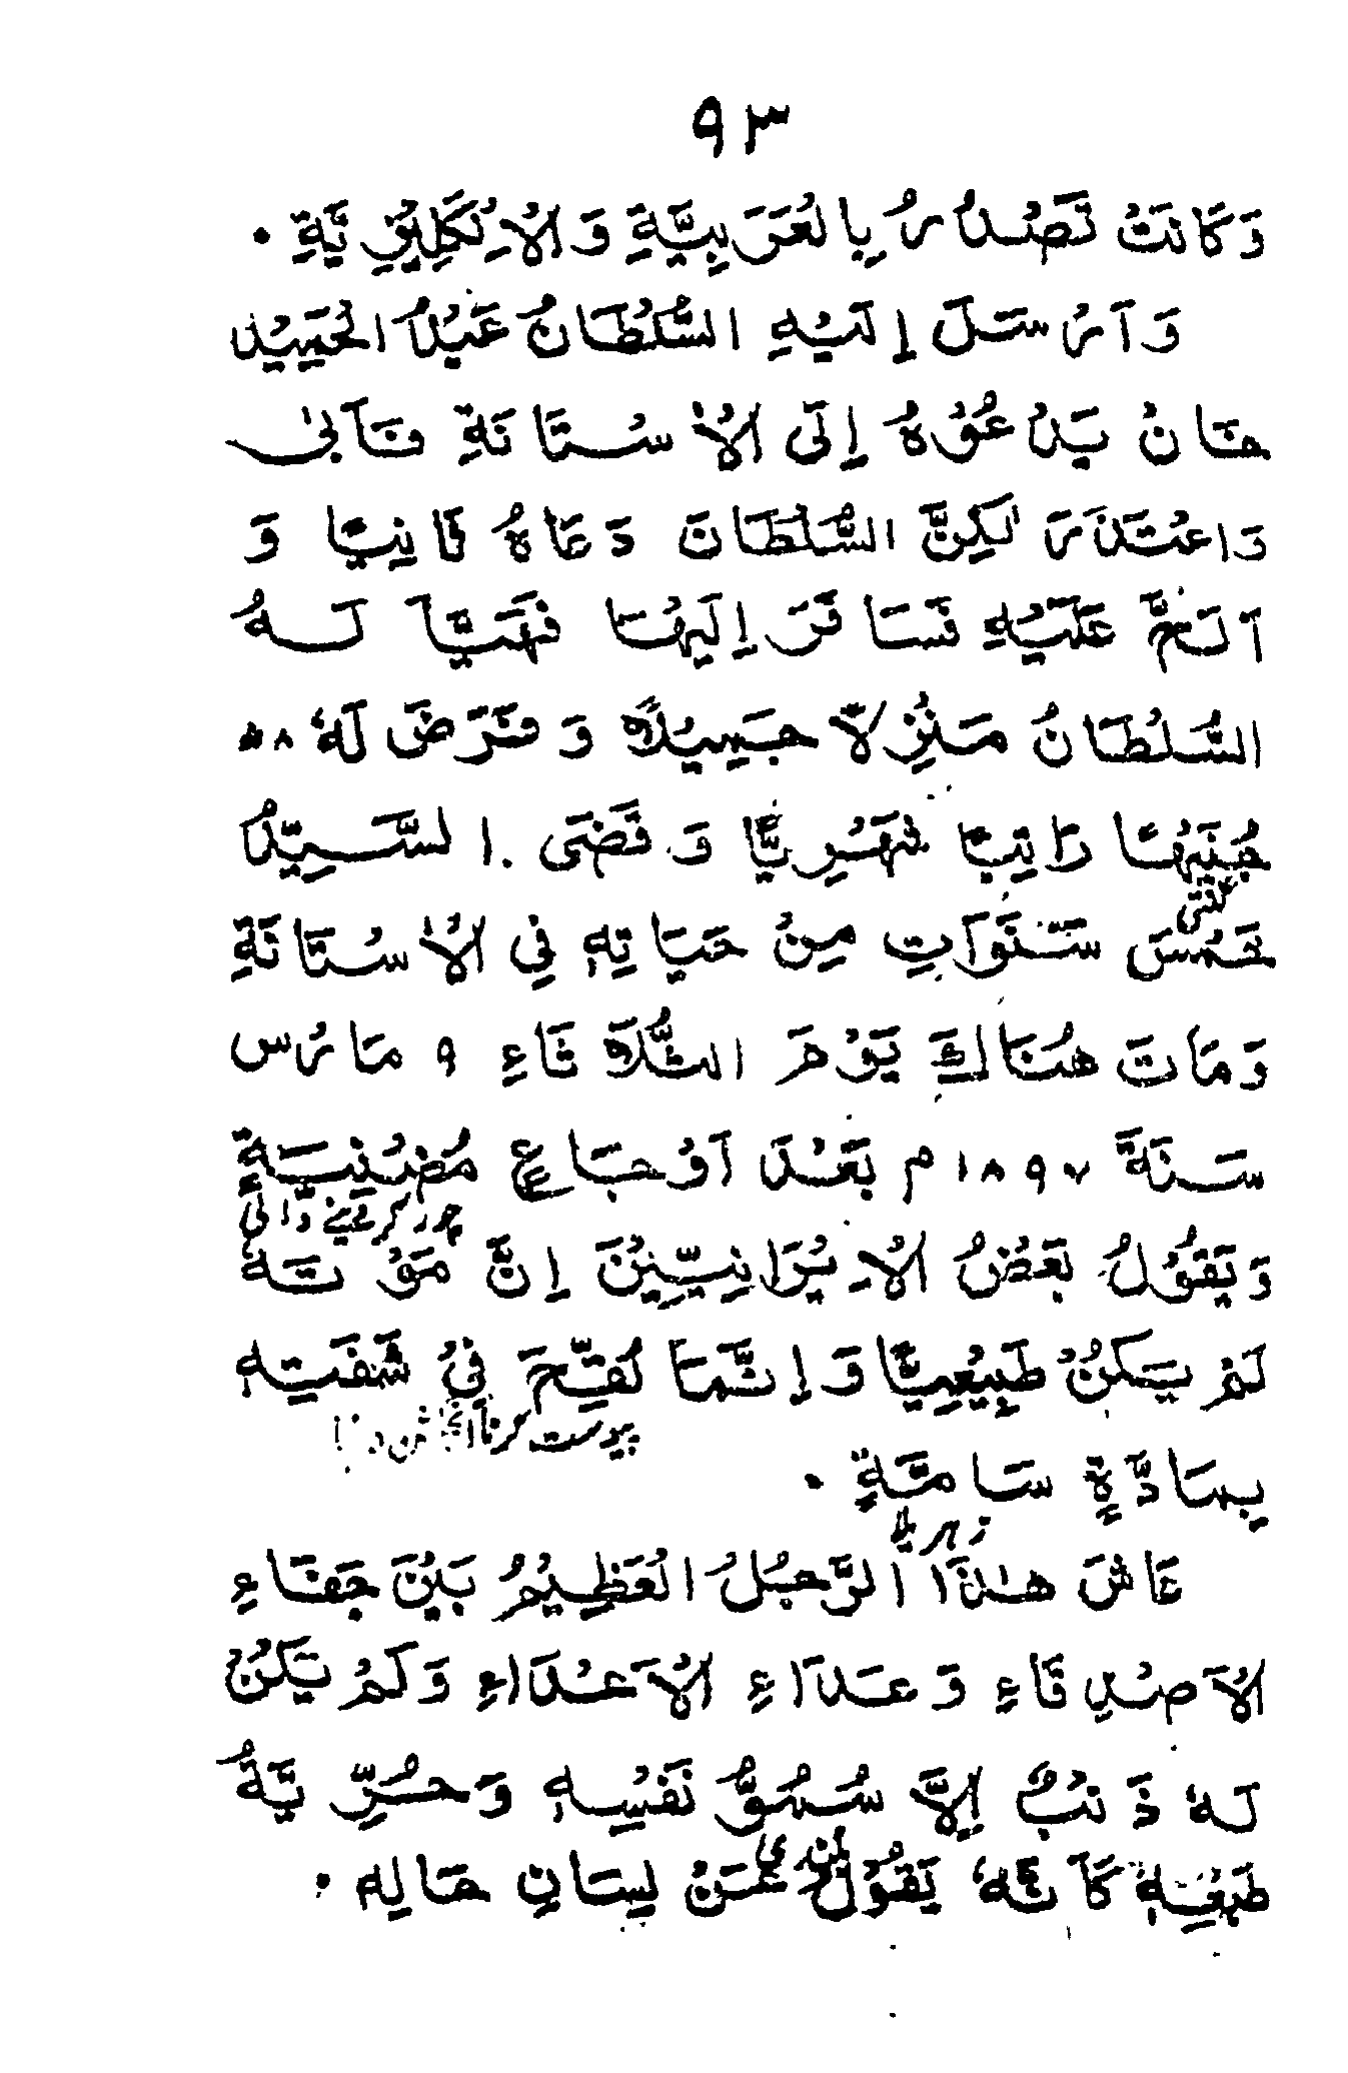 ٩٣
وَكَانَتْ تَصْدُرُ بِالْعَرَبِيَّةِ وَالْاِنْكِلِيْزِيَّةِ ۰
وَاَرْسَلَ إِلَيْهِ السُّلْطَانُ عَبْدُ الْحَمِيْدِ
خَانْ يَدْعُوْهُ إِلَى الْاٰسْتَانَةِ فَاَبٰى
وَاعْتَذَرَ لٰكِنَّ السُّلْطَانَ دَعَاهُ ثَانِيًا وَ
اَلَحَّ عَلَيْهِ فَسَافَرَ اِلَيْهَا فَهَيَّاَ لَهُ
السُّلْطَانُ مَنْزِلًا جَمِيْلًا وَفَرَضَ لَهٗ ٧٥
جُنَيْهًا رَاتِبًا شَهْرِيًّا وَقَضَى السَّيِّدُ
خَمْسَ سَنَوَاتٍ مِنْ حَيَاتِهٖ فِي الْاٰسْتَانَةِ
وَمَاتَ هُنَاكَ يَوْمَ الثُّلَاثَاءِ ٩ مَارْس
سَنَةَ ١٨٩٧م بَعْدَ اَوْجَاعٍ مُضْنِيَةٍ
چور کر دینے والی
وَيَقُوْلُ بَعْضُ الْاِيْرَانِيِّيْنَ اِنَّ مَوْتَهٗ
لَمْ يَكُنْ طَبِيْعِيًّا وَاِنَّمَا لُقِّحَ فِيْ شَفَتِهٖ
پیوست کرنا
بِمَادَّةٍ سَامَّةٍ ۰
زہریلا
عَاشَ هٰذَا الرَّجُلُ الْعَظِيْمُ بَيْنَ جَفَاءِ
الْاَصْدِقَاءِ وَعَدَاءِ الْاَعْدَاءِ وَلَمْ يَكُنْ
لَهٗ ذَنْبٌ اِلَّا سُمُوُّ نَفْسِهٖ وَحُرِّيَّةُ
طَبْعِهٖ كَاَنَّهٗ يَقُوْلُ عَنْ لِسَانِ حَالِهٖ ۰